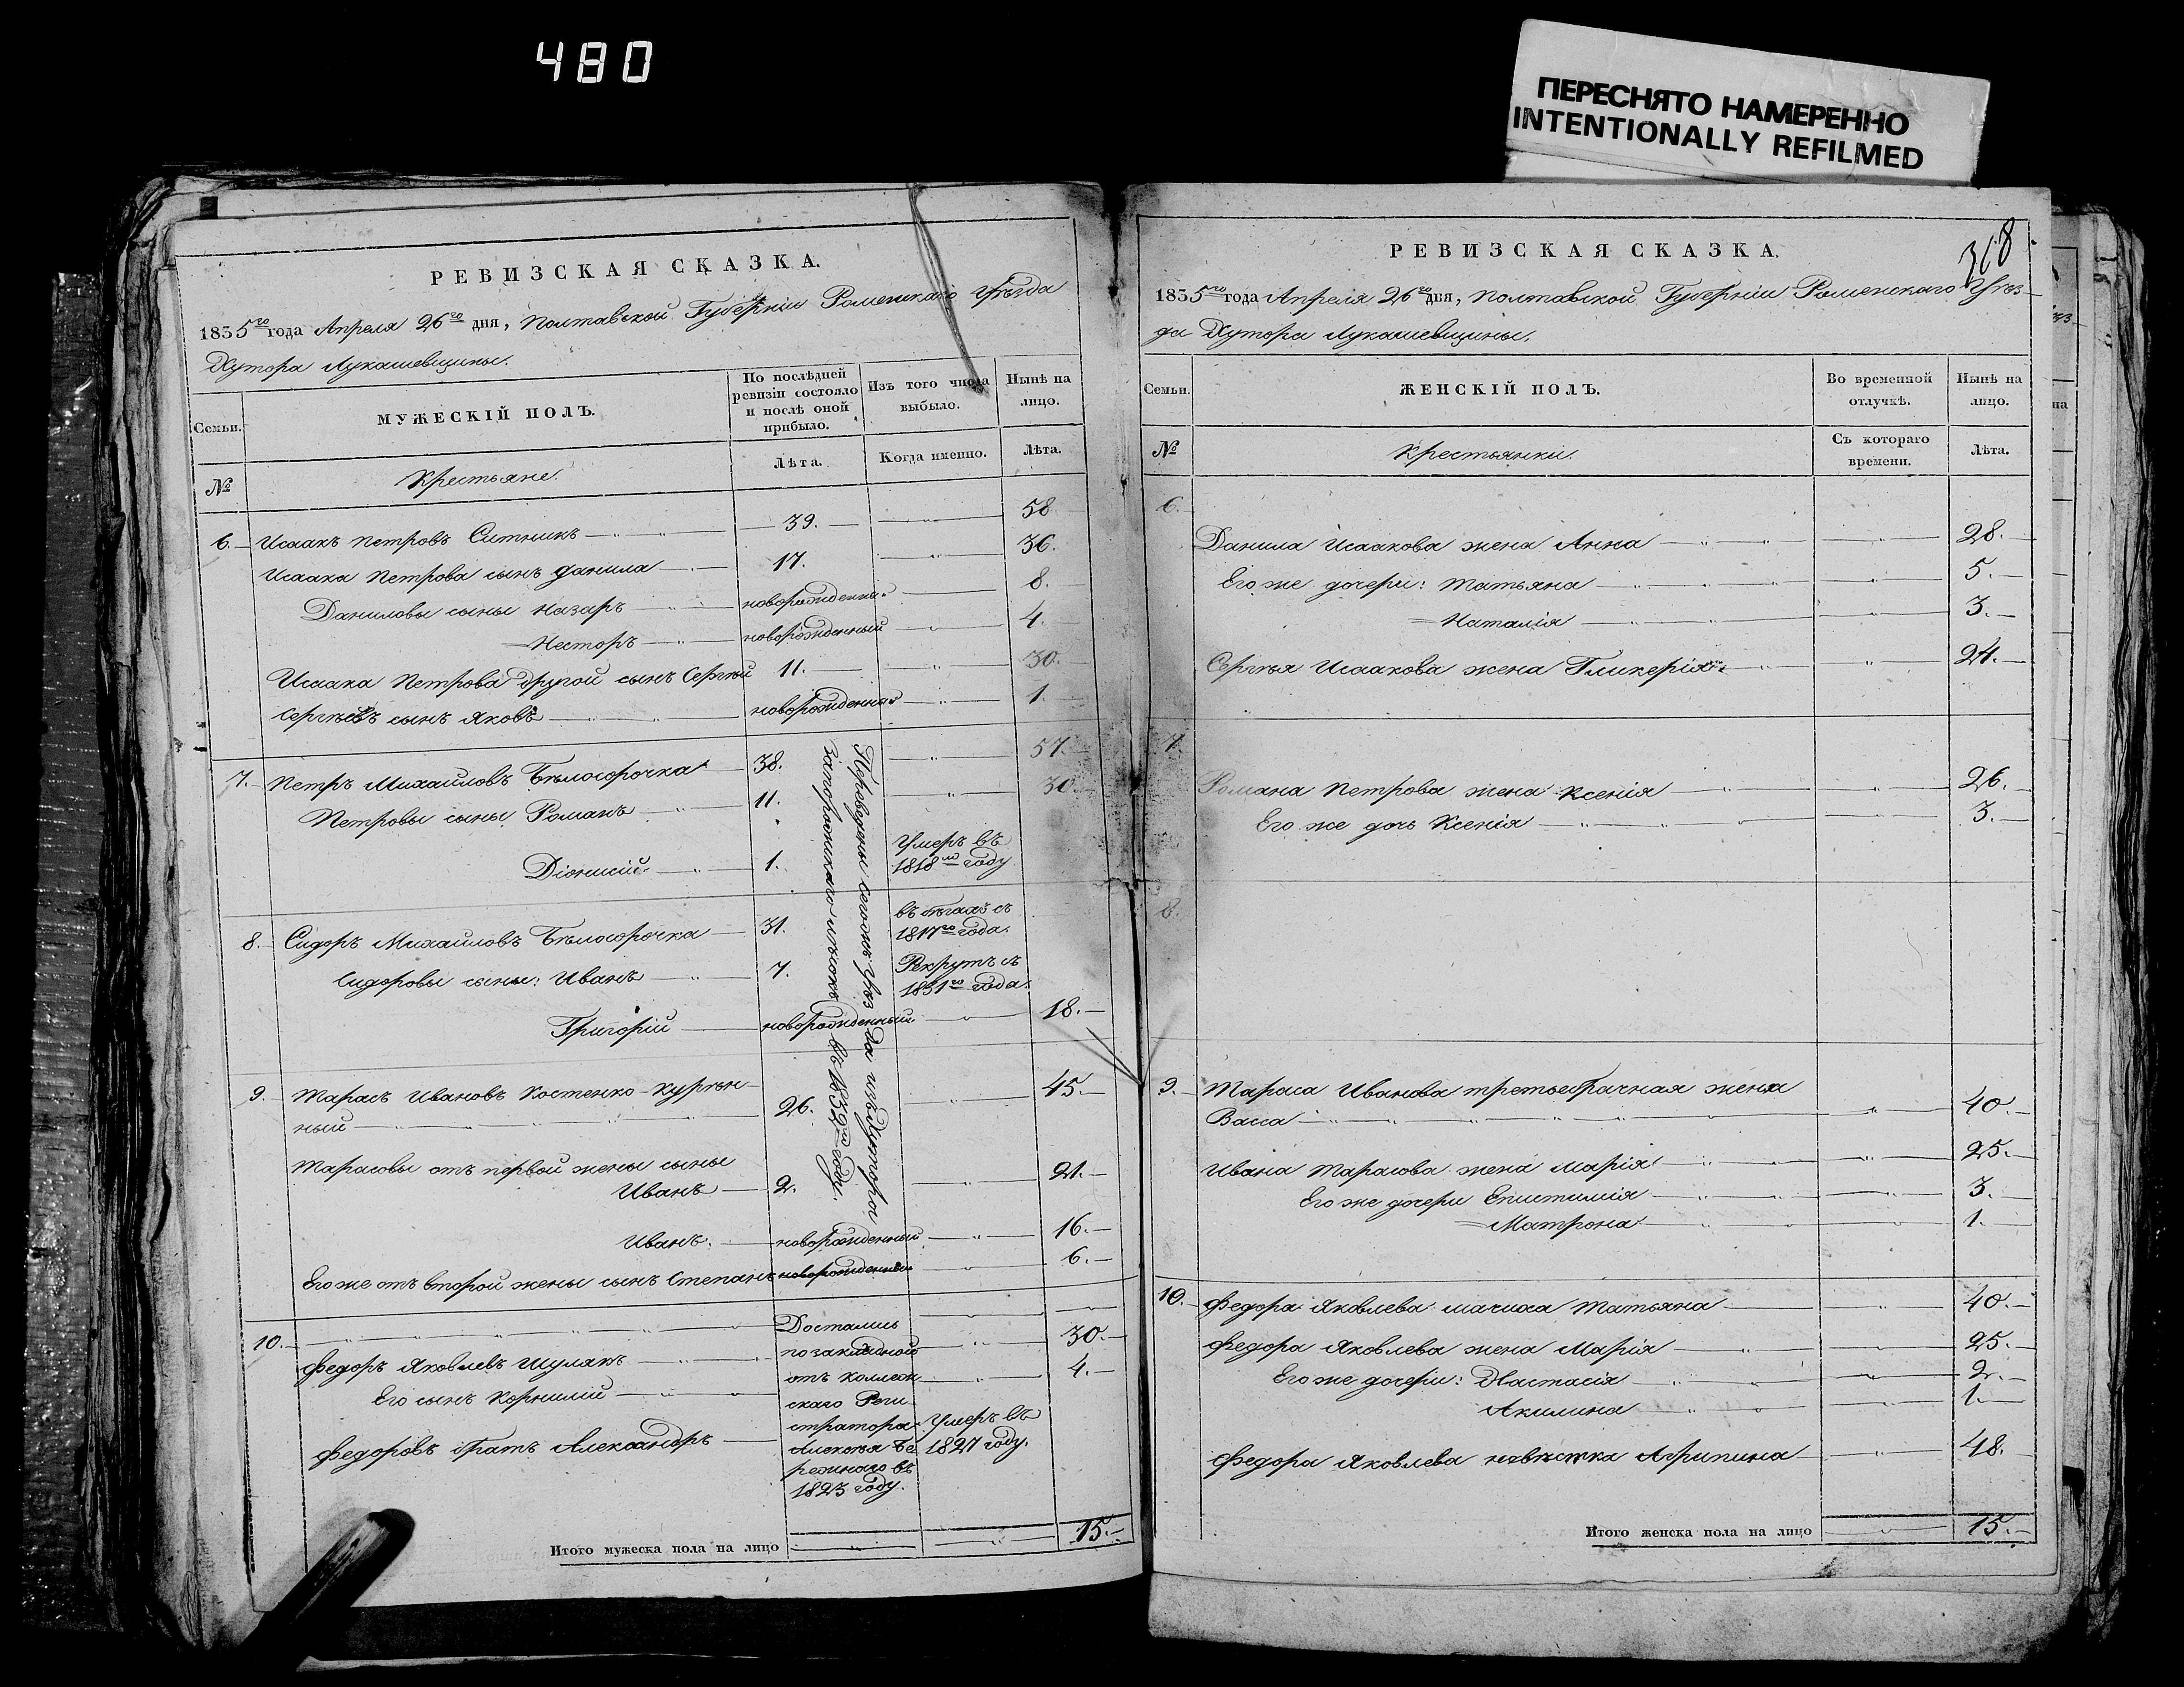 480
ПЕРЕСНЯТО НАМЕРЕННО
INTENTIONALLY REFILMED
РЕВИЗСКАЯ СКАЗКА.
1835го года Апреля 26го дня, Полтавской Губерніи Роменскаго Уѣзда
Хутора Лукашевщины.
Семьи.
МУЖЕСКІЙ ПОЛЪ.
По послѣдней ревизіи состояло и послѣ оной прибыло.
Изъ того числа выбыло.
Нынѣ на лицо.
№
Крестьяне.
Лѣта.
Когда именно.
Лѣта.
6. Исаакъ Петровъ Ситникъ 39. 58
Исаака Петрова сынъ Данила 17. 36.
Даниловы сыны Назаръ новорожденный 8.
Несторъ новорожденный 4.
Исаака Петрова другой сынъ Сергѣй 11. 30.
Сергѣевъ сынъ Яковъ новорожденный 1.
7. Петръ Михайловъ Бѣлосорочка 38. 57.
Петровы сыны Романъ 11. 30.
Діонисій 1. Умеръ въ 1818мъ году
8. Сидоръ Михайловъ Бѣлосорочка 31. въ бѣгахъ съ 1817го года.
Сидоровы сыны: Иванъ 7. Рекрутъ съ 1831го года.
Григорій новорожденный 18.
9. Тарасъ Ивановъ Костенко-Курѣн-
ный 26. 45.
Тарасовы отъ первой жены сыны
Иванъ 2. 21.
Иванъ новорожденный 16.
Его же отъ второй жены сынъ Степанъ новорожденный 6.
Переведены сегожъ Уѣзда изъ Хутора
въ 1832мъ году.
10. Достались
Федоръ Яковлевъ Шулякъ по закладной 30.
Его сынъ Корнилій отъ Коллеж- 4.
скаго Реги-
стратора
Федоровъ братъ Александръ Алексѣя Бе- Умеръ въ 1827 году.
режнаго въ
1823 году.
Итого мужеска пола на лицо 15.
РЕВИЗСКАЯ СКАЗКА.
368
1835го года Апреля 26го дня, Полтавской Губерніи Роменскаго Уѣз-
да Хутора Лукашевщины.
Семьи.
ЖЕНСКІЙ ПОЛЪ.
Во временной отлучкѣ.
Нынѣ на лицо.
№
Крестьянки.
Съ котораго времени.
Лѣта.
6.
Данила Исаакова жена Анна 28.
Его же дочери: Татьяна 5.
Наталія 3.
Сергѣя Исаакова жена Гликерія 24.
7.
Романа Петрова жена Ксенія 26.
Его же дочь Ксенія 3.
8.
9. Тараса Иванова третьебрачная жена
Васса 40.
Ивана Тарасова жена Марія 25.
Его же дочери Епистимія 3.
Матрона 1.
10. Федора Яковлева мачиха Татьяна 40.
Федора Яковлева жена Марія 25.
Его же дочери: Настасія 2.
Акилина 1.
Федора Яковлева невѣстка Агрипина 48.
Итого женска пола на лицо 15.